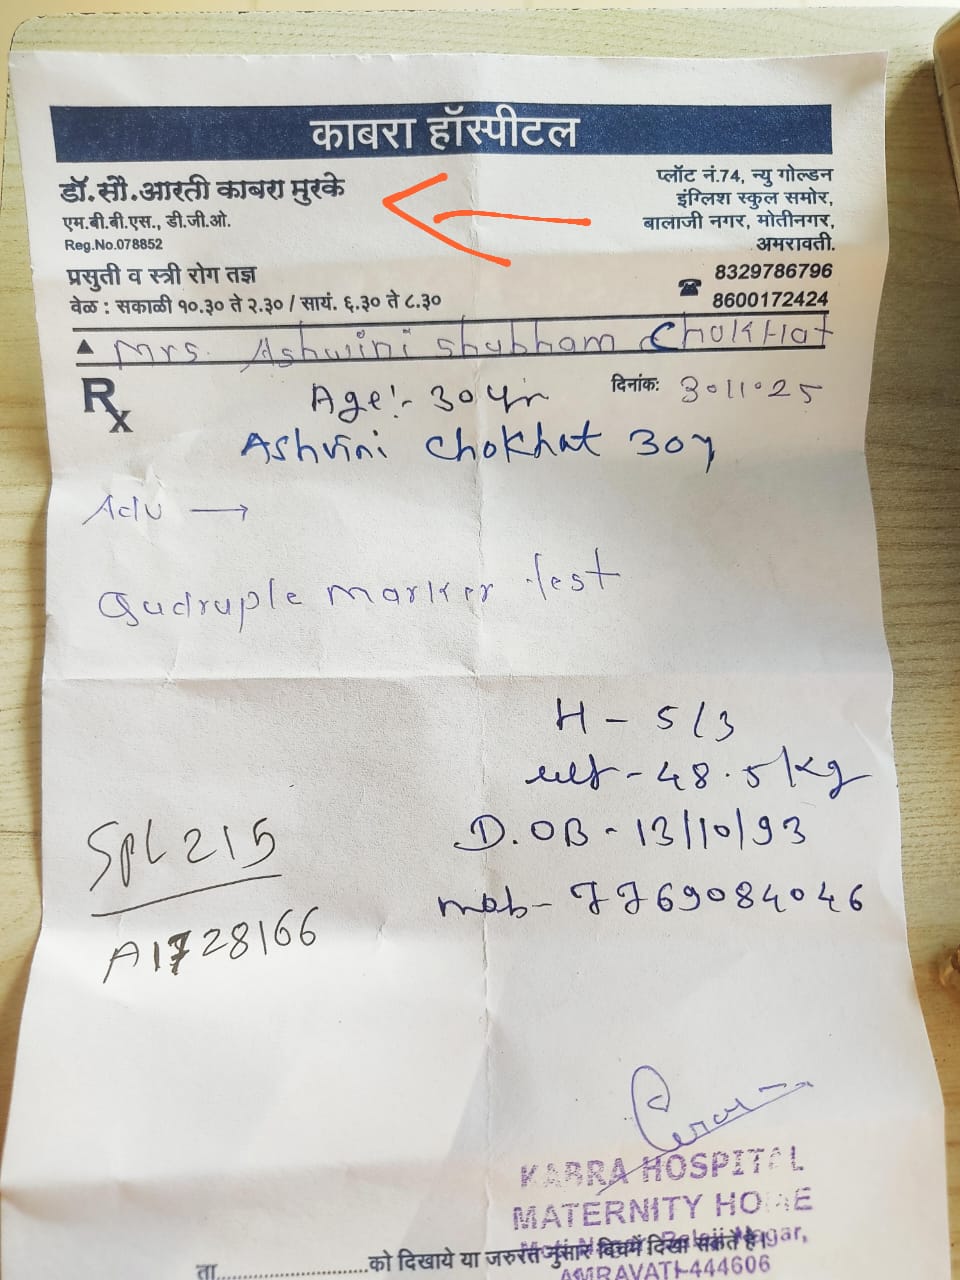 काबरा हॉस्पीटल
डॉ.सौ.आरती काबरा मुरके
एम.बी.बी.एस., डी.जी.ओ.
Reg.No.078852
प्रसुती व स्त्री रोग तज्ञ
वेळ : सकाळी १०.३० ते २.३० / सायं. ६.३० ते ८.३०
प्लॉट नं.74, न्यु गोल्डन
इंग्लिश स्कुल समोर,
बालाजी नगर, मोतीनगर,
अमरावती.
8329786796
8600172424
Mrs. Ashwini shubham Chokhat
Rx
Age:- 30 yr
दिनांक: 30.11.25
Ashvini Chokhat 30y
Adv →
Quadruple marker test
H - 5/3
wt - 48.5/kg
D.OB - 13/10/93
mob - 7769084046
SPL215
A1728166
KABRA HOSPITAL
MATERNITY HOME
Moti Nagar, Balaji Nagar,
AMRAVATI-444606
ता..............................को दिखाये या जरुरत नुसार बिचमें दिखा सकते है।